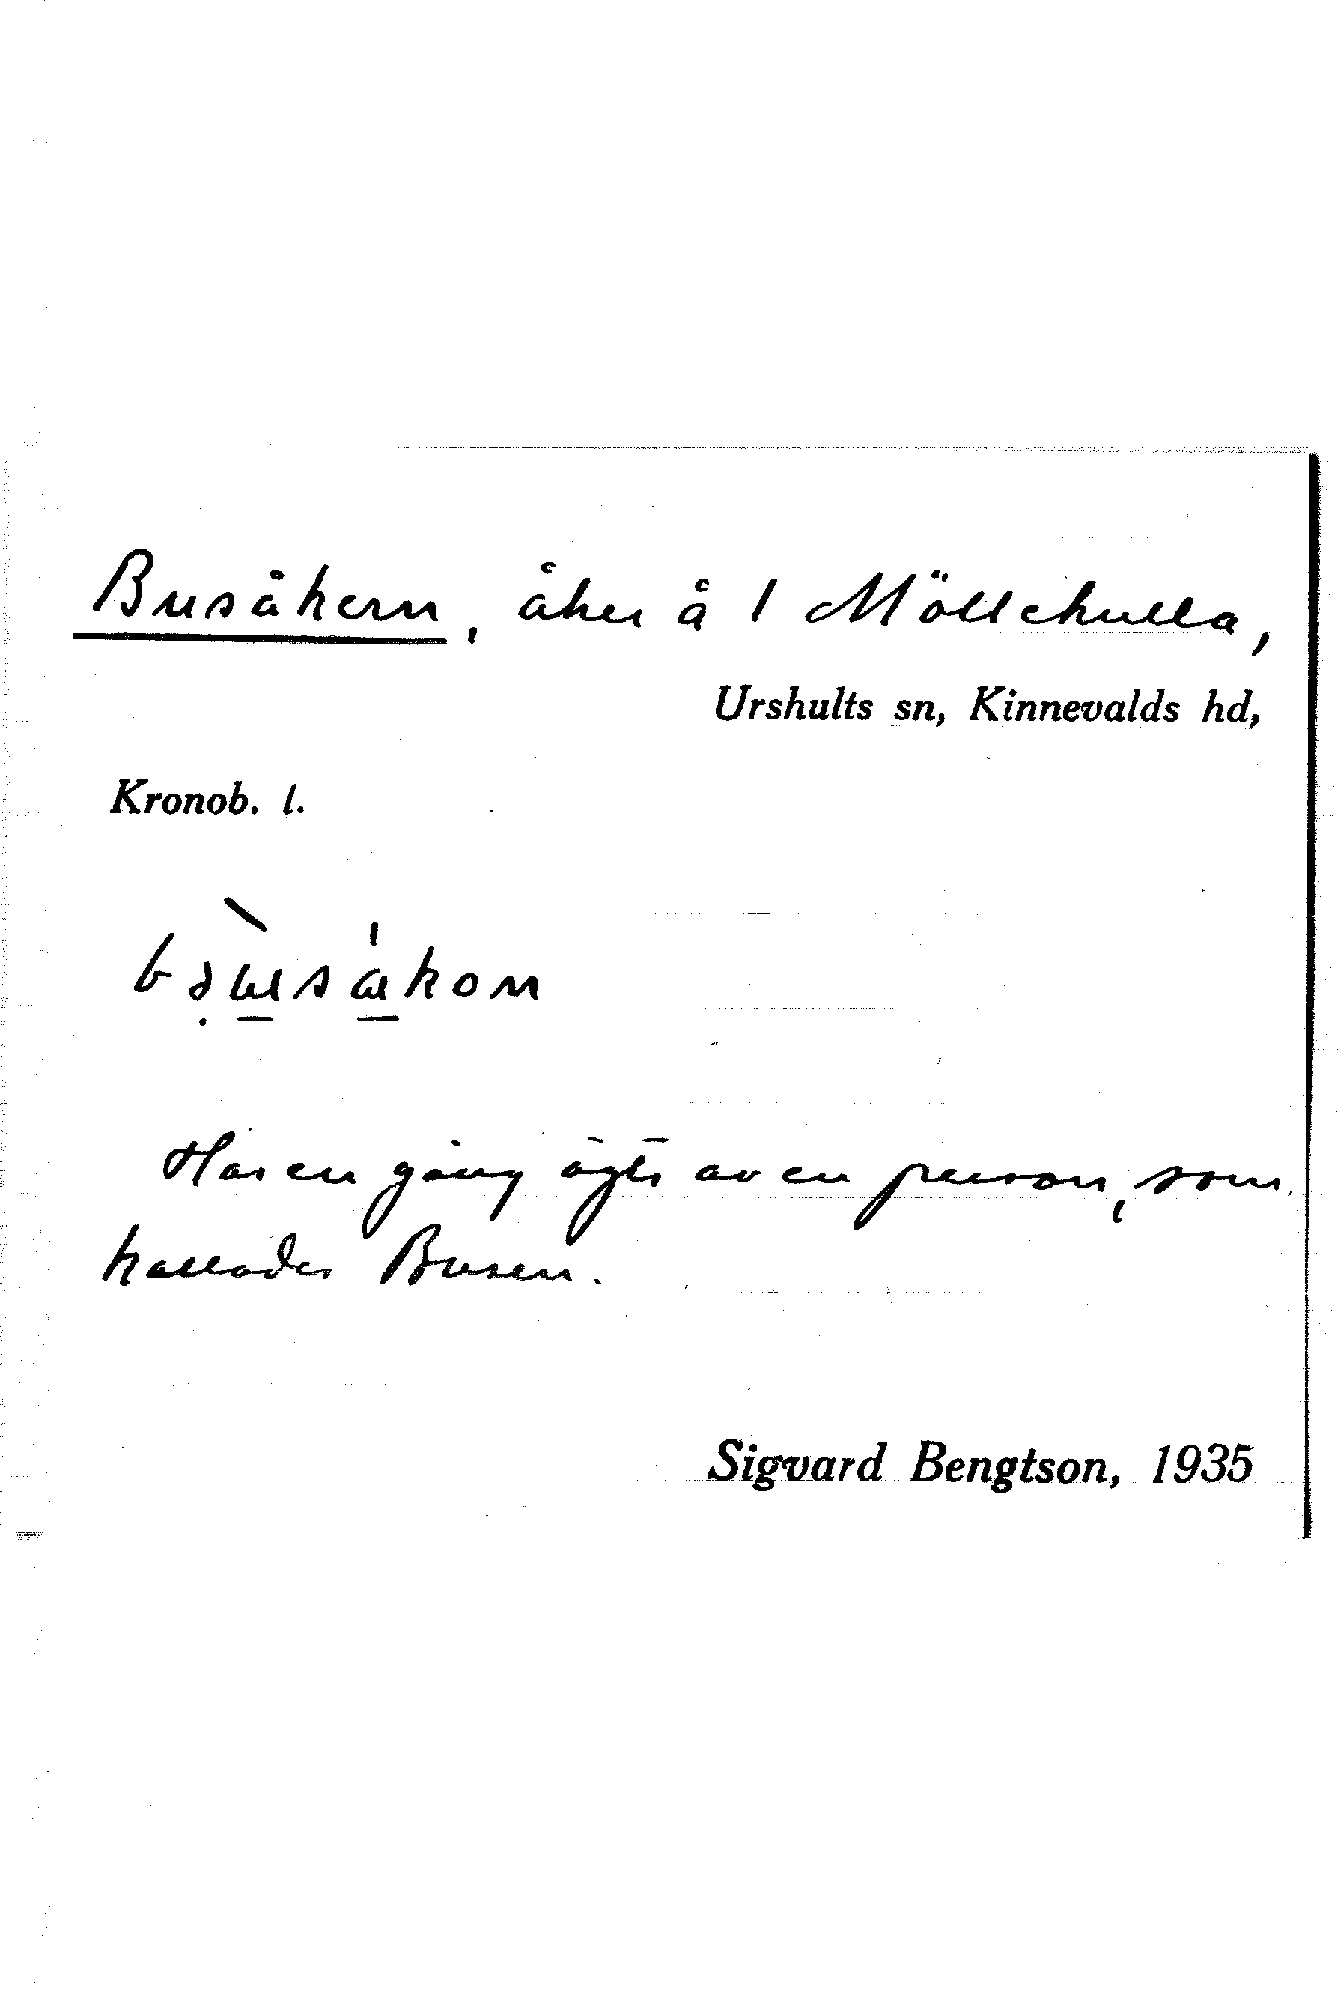 Busåkern, åker å 1 Möllekulla,
Urshults sn, Kinnevalds hd,
Kronob. l.
Har en gång ägts av en person, som
kallades Busen.
Sigvard Bengtson, 1935